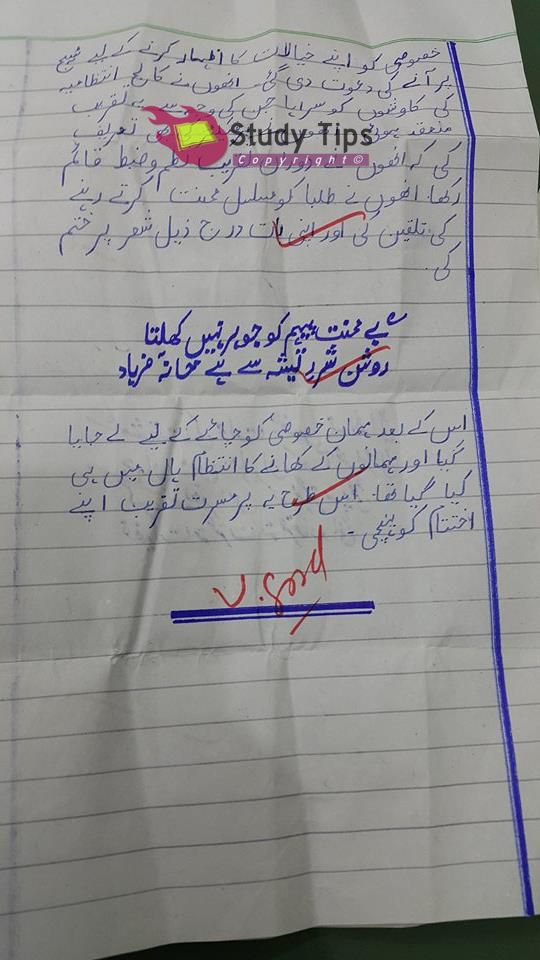 خصوصی کو اپنے خیالات کا اظہار کرنے کے لیے سٹیج
پر آنے کی دعوت دی گئی۔ انھوں نے کالج انتظامیہ
کی کاوشوں کو سراہا جن کی وجہ سے یہ تقریب
منعقد ہوئی۔ تعریف
Study Tips
Copyright©
کی کہ انھوں نے دوران تقریب نظم و ضبط قائم
رکھا۔ انھوں نے طلبا کو مسلسل محنت کرتے رہنے
کی تلقین کی اور اپنی بات درج ذیل شعر پر ختم
کی۔
بے محنت پیہم کوئی جوہر نہیں کھلتا
روشن شرر تیشہ سے ہے خانہ فرہاد
اس کے بعد مہمان خصوصی کو چائے کے لیے لے جایا
گیا اور مہمانوں کے کھانے کا انتظام ہال میں ہی
کیا گیا تھا۔ اس طرح یہ پر مسرت تقریب اپنے
اختتام کو پہنچی۔
V. Good